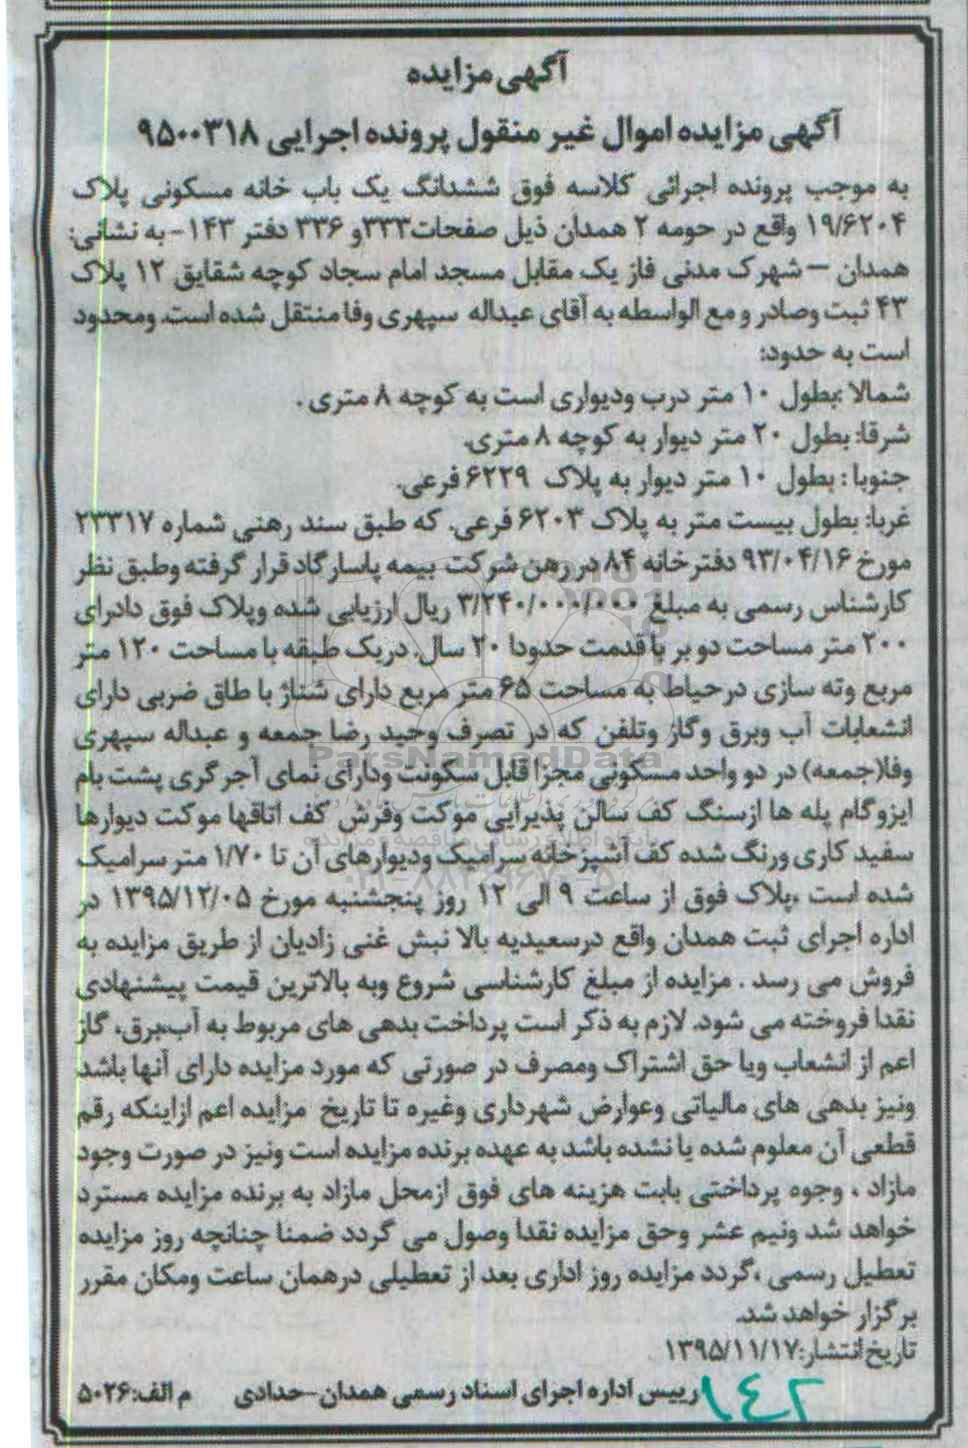 آگهی مزایده
آگهی مزایده اموال غیر منقول پرونده اجرایی ۹۵۰۰۳۱۸
به موجب پرونده اجرائی کلاسه فوق ششدانگ یک باب خانه مسکونی پلاک
۱۹/۶۲۰۴ واقع در حومه ۲ همدان ذیل صفحات۳۳۳و ۳۳۶ دفتر ۱۴۳ -به نشانی:
همدان – شهرک مدنی فاز یک مقابل مسجد امام سجاد کوچه شقایق ۱۲ پلاک
۴۳ ثبت وصادر و مع الواسطه به آقای عبداله سپهری وفا منتقل شده است. ومحدود
است به حدود:
شمالا :بطول ۱۰ متر درب ودیواری است به کوچه ۸ متری .
شرقا: بطول ۲۰ متر دیوار به کوچه ۸ متری.
جنوبا : بطول ۱۰ متر دیوار به پلاک ۶۲۲۹ فرعی.
غربا: بطول بیست متر به پلاک ۶۲۰۳ فرعی. که طبق سند رهنی شماره ۲۳۳۱۷
مورخ ۹۳/۰۴/۱۶ دفترخانه ۸۴ در رهن شرکت بیمه پاسارگاد قرار گرفته وطبق نظر
کارشناس رسمی به مبلغ ۳/۲۴۰/۰۰۰/۰۰۰ ریال ارزیابی شده وپلاک فوق دادرای
۲۰۰ متر مساحت دو بر با قدمت حدودا ۲۰ سال. دریک طبقه با مساحت ۱۲۰ متر
مربع وته سازی درحیاط به مساحت ۶۵ متر مربع دارای شناژ با طاق ضربی دارای
انشعابات آب وبرق وگاز وتلفن که در تصرف وحید رضا جمعه و عبداله سپهری
وفا(جمعه) در دو واحد مسکونی مجزا قابل سکونت ودارای نمای آجر گری پشت بام
ایزوگام پله ها ازسنگ کف سالن پذیرایی موکت وفرش کف اتاقها موکت دیوارها
سفید کاری ورنگ شده کف آشپزخانه سرامیک ودیوارهای آن تا ۱/۷۰ متر سرامیک
شده است ،پلاک فوق از ساعت ۹ الی ۱۲ روز پنجشنبه مورخ ۱۳۹۵/۱۲/۰۵ در
اداره اجرای ثبت همدان واقع درسعیدیه بالا نبش غنی زادیان از طریق مزایده به
فروش می رسد . مزایده از مبلغ کارشناسی شروع وبه بالاترین قیمت پیشنهادی
نقدا فروخته می شود. لازم به ذکر است پرداخت بدهی های مربوط به آب،برق، گاز
اعم از انشعاب ویا حق اشتراک ومصرف در صورتی که مورد مزایده دارای آنها باشد
ونیز بدهی های مالیاتی وعوارض شهرداری وغیره تا تاریخ مزایده اعم ازاینکه رقم
قطعی آن معلوم شده یا نشده باشد به عهده برنده مزایده است ونیز در صورت وجود
مازاد ، وجوه پرداختی بابت هزینه های فوق ازمحل مازاد به برنده مزایده مسترد
خواهد شد ونیم عشر وحق مزایده نقدا وصول می گردد ضمنا چنانچه روز مزایده
تعطیل رسمی ،گردد مزایده روز اداری بعد از تعطیلی درهمان ساعت ومکان مقرر
برگزار خواهد شد.
تاریخ انتشار:۱۳۹۵/۱۱/۱۷
رییس اداره اجرای اسناد رسمی همدان-حدادی م الف:۵۰۲۶
ParsNamadData